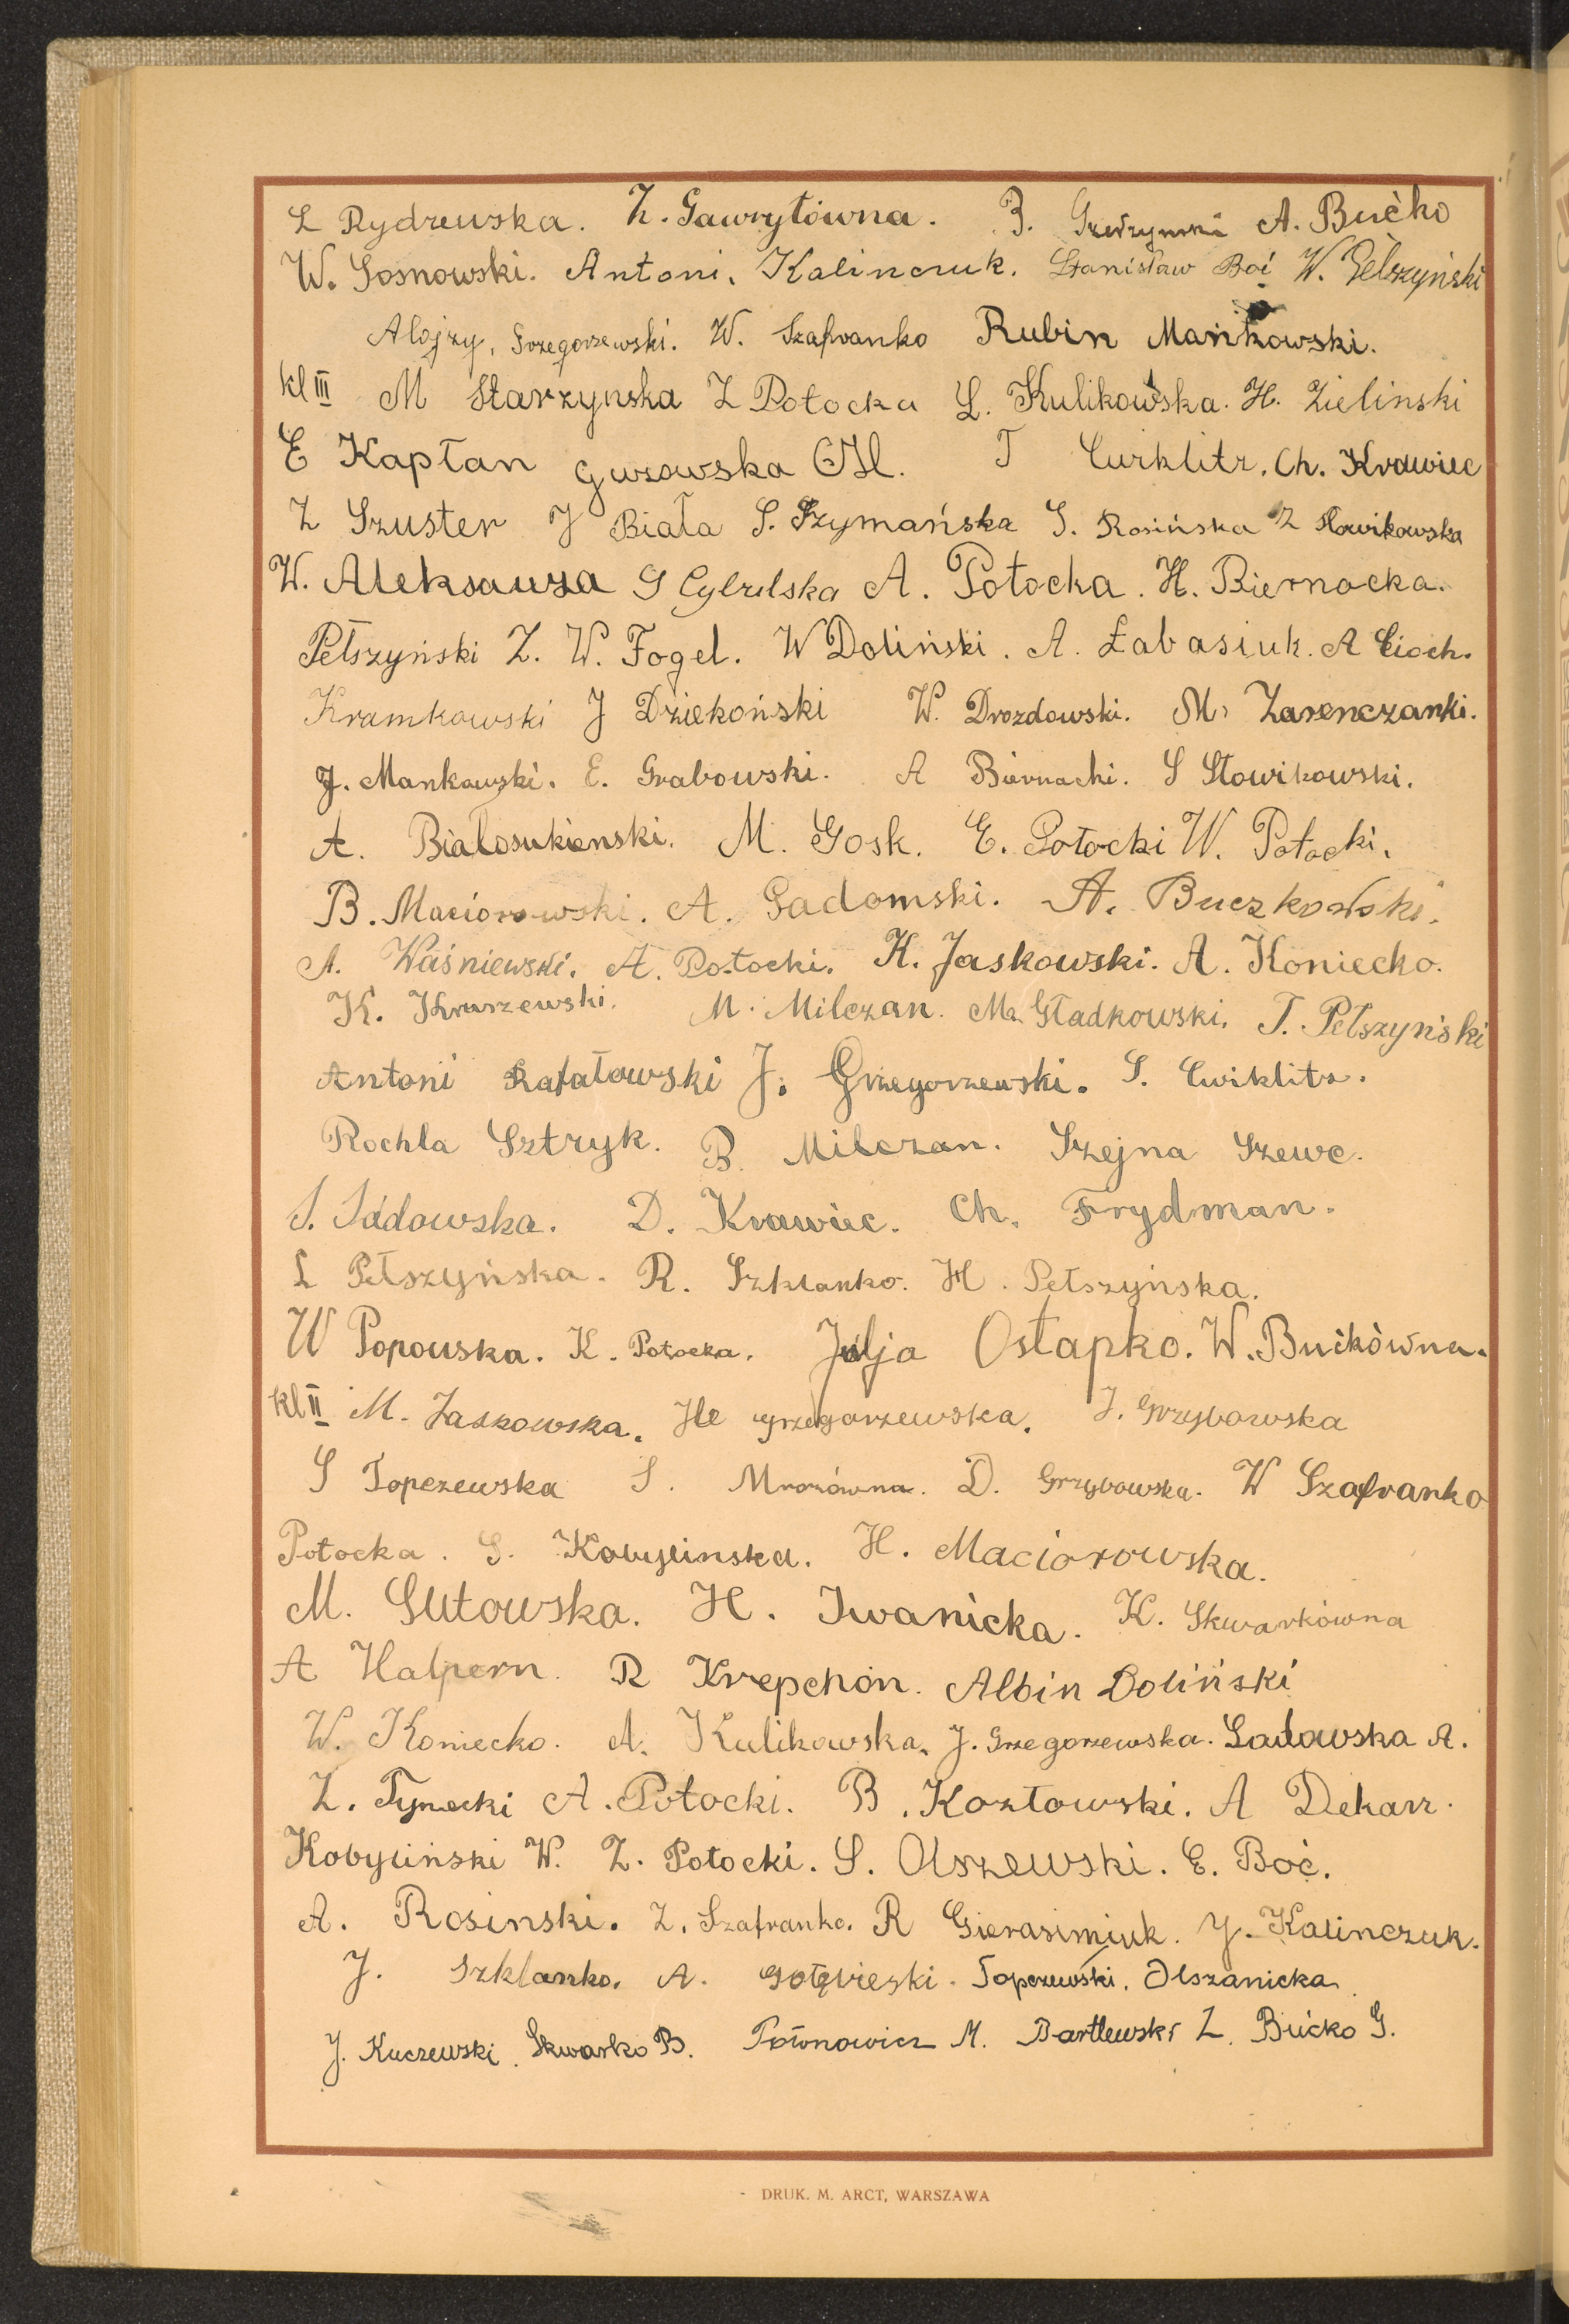 L Rydzewska. Z. Gawryłówna. B. A. Bućko
W. Sosnowski. Antoni. Kalinczuk. Stanisław Boć W. Pełszyński
Alojzy, Grzegorzewski. W. Szafranko Rubin Mańkowski.
kl III M Starzynska Z Potocka L. Kulikowska. H. Zielinski
E Kapłan Guzowska H. T Cwiklitz. Ch. Krawiec
Z Szuster J Biała S. Szymańska S. Rosińska Z Słowikowska
W. Aleksauza S Cybulska A. Potocka. H. Biernacka.
Pełszyński Z. W. Fogel. W Doliński. A. Łabasiuk. A Cioch.
Kramkowski J Dziekoński W. Drozdowski. M. Zarenczanki.
J. Mankowski. E. Grabowski. A Biernacki. S Słowikowski.
A. Białosukienski. M. Gosk. E. Potocki W. Potocki.
B. Maciorowski. A. Gadomski. A. Buczkowski.
A. Waśniewski. A. Potocki. K. Jaskowski. A. Koniecko.
K. Kruszewski. M. Milczan. M. Gładkowski. T. Pełszyński
Antoni Rafałowski J. Grzegorzewski. S. Cwiklitz.
Rochla Sztryk. B. Milczan. Szejna Szewc.
S. Sadowska. D. Krawiec. Ch. Frydman.
L Pełszyńska. R. Szklanko. H. Pełszyńska.
W Popowska. K. Potocka. Julja Ostapko. W. Bućkówna.
kl II M. Jaskowska. He Grzegorzewska. J. Grzybowska
S Topczewska S. Mrozówna. D. Grzybowska. W Szafranko
Potocka. S. Kobylinska. H. Maciorowska.
M. Gutowska. H. Iwanicka. K. Skwarkówna
A Halpern. R Krepchon. Albin Doliński
W. Koniecko. A. Kulikowska. J. Grzegorzewska. Sadowska A.
Z. Tynecki A. Potocki. B. Kozłowski. A Dekarz.
Kobyliński W. Z. Potocki. S. Olszewski. E. Boć.
A. Rosinski. Z. Szafranko. R Gierasimiuk. J. Kalinczuk.
J. Szklanko. A. Gołębieski. Topczewski. Olszanicka.
J. Kuczewski. Skwarko B. M. Bartlewski Z. Bućko G.
DRUK. M. ARCT, WARSZAWA